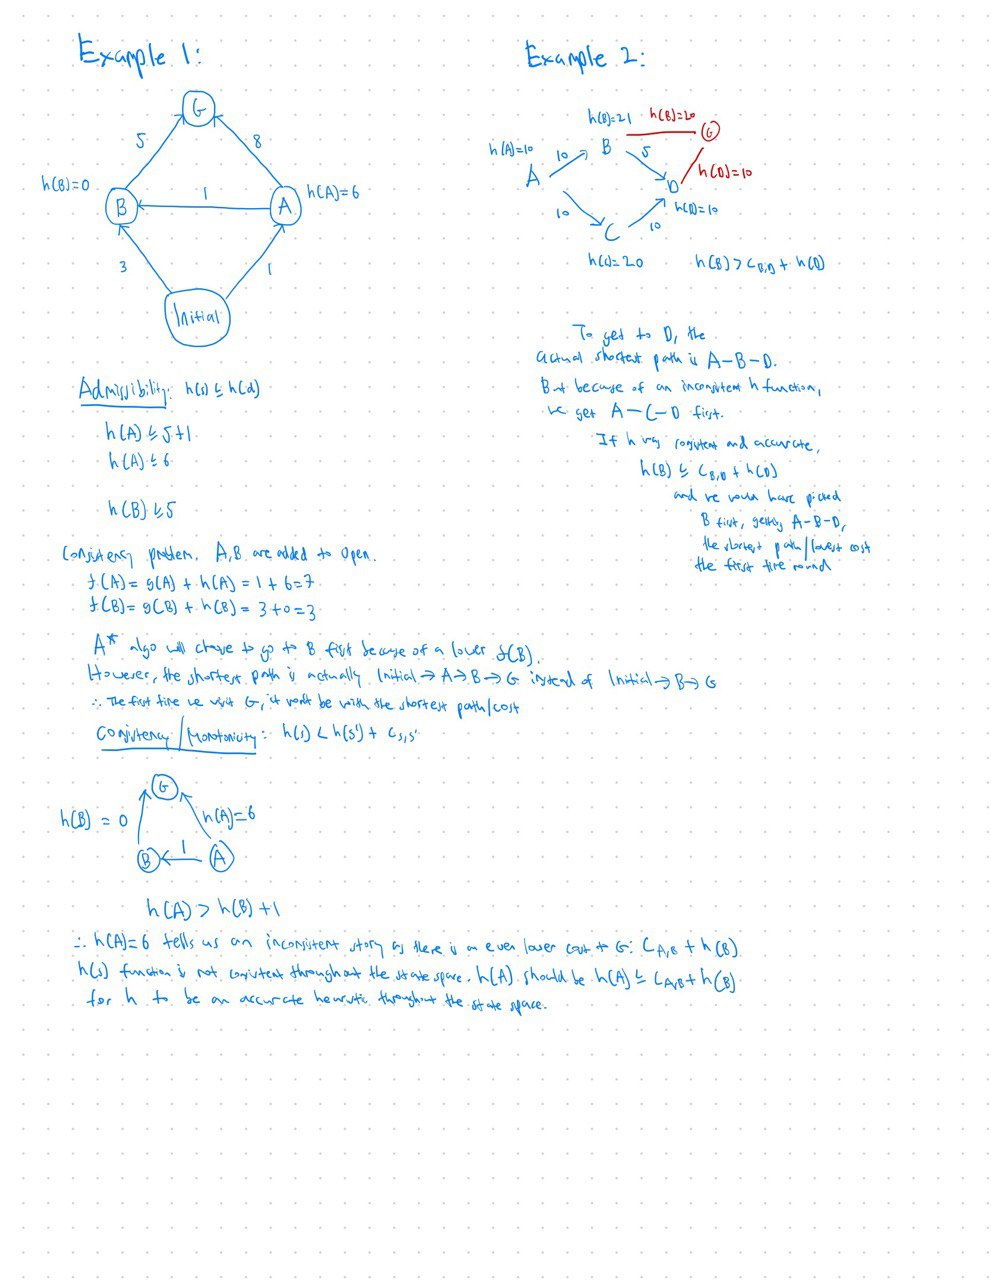 Example 1:
G
5
8
h(B)=0
B
1
A
h(A)=6
3
1
Initial
Admissibility: h(s) ≤ h(d)
h(A) ≤ 5+1
h(A) ≤ 6
h(B) ≤ 5
Consistency problem. A,B are added to open.
f(A) = g(A) + h(A) = 1 + 6 = 7
f(B) = g(B) + h(B) = 3 + 0 = 3
A* algo will choose to go to B first because of a lower f(B).
However, the shortest path is actually Initial → A → B → G instead of Initial → B → G
∴ The first time we visit G, it won't be with the shortest path/cost
Consistency / Monotonicity: h(s) < h(s') + Cs,s'
G
h(B) = 0
h(A)=6
B
1
A
h(A) > h(B) + 1
∴ h(A)=6 tells us an inconsistent story as there is an even lower cost to G: CA,B + h(B)
h(s) function is not consistent throughout the state space. h(A) should be h(A) ≤ CA,B + h(B)
for h to be an accurate heuristic throughout the state space.
Example 2:
h(B)=21
h(B)=20
G
h(A)=10
10
B
5
A
D
h(D)=10
h(D)=10
10
C
10
h(C)=20
h(B) > CB,D + h(D)
To get to D, the
actual shortest path is A-B-D.
But because of an inconsistent h function,
we get A-C-D first.
If h was consistent and accurate,
h(B) ≤ CB,D + h(D)
and we would have picked
B first, getting A-B-D,
the shortest path/lowest cost
the first time round